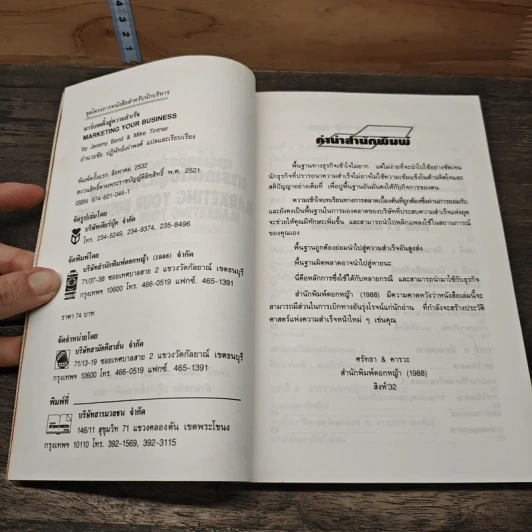 ชุดโครงการหนังสือสำหรับนักบริหาร
มาร์เกตติ้งสู่ความสำเร็จ
MARKETING YOUR BUSINESS
by Jeremy Bond & Mike Tintner
แปลและเรียบเรียง
พิมพ์ครั้งแรก สิงหาคม 2532
สงวนลิขสิทธิ์ตามพระราชบัญญัติลิขสิทธิ์ พ.ศ. 2521
ISBN 974-601-044-1
จัดรูปเล่มโดย
โทร. 234-5249, 234-9374, 235-8496
จัดพิมพ์โดย
บริษัทสำนักพิมพ์ดอกหญ้า (1988) จำกัด
71/37-38 ซอยเทศบาลสาย 2 แขวงวัดกัลยาณ์ เขตธนบุรี
กรุงเทพฯ 10600 โทร. 466-0519 แฟกซ์. 465-1391
ราคา 74 บาท
จัดจำหน่ายโดย
71/13-19 ซอยเทศบาลสาย 2 แขวงวัดกัลยาณ์ เขตธนบุรี
กรุงเทพฯ 10600 โทร. 466-0519 แฟกซ์. 465-1391
พิมพ์ที่
บริษัทสารมวลชน จำกัด
146/11 สุขุมวิท 71 แขวงคลองตัน เขตพระโขนง
กรุงเทพฯ 10110 โทร. 392-1569, 392-3115
คำนำสำนักพิมพ์
พื้นฐานทางธุรกิจเข้าใจไม่ยาก แต่ไม่ง่ายที่จะนำไปใช้อย่างชัดเจน
นักธุรกิจที่ปรารถนาความสำเร็จไม่อาจที่จะไม่ใช้ความเข้มแข็งในด้านจิตใจและ
สติปัญญาอย่างเต็มที่ เพื่อปูพื้นฐานอันมั่นคงให้กับกิจการของตน
ความเข้าใจบทเรียนทางการตลาดเบื้องต้นที่ถูกต้องซึ่งผ่านการยอมรับ
และยังคงเป็นพื้นฐานในการมองตลาดของบริษัทที่ประสบความสำเร็จแห่งยุค
จะช่วยให้คุณมีทักษะเพิ่มขึ้น และสามารถนำไปพลิกแพลงใช้ในสถานการณ์
ของคุณเอง
พื้นฐานถูกต้องย่อมนำไปสู่ความสำเร็จอันสูงส่ง
พื้นฐานผิดพลาดอาจนำไปสู่หายนะ
นี่คือหลักการซึ่งใช้ได้กับหลายกรณี และสามารถนำมาใช้กับธุรกิจ
สำนักพิมพ์ดอกหญ้า (1988) มีความคาดหวังว่าหนังสือเล่มนี้จะ
สามารถมีส่วนในการเบิกทางอันรุ่งโรจน์แก่นักอ่าน ที่กำลังจะสร้างประวัติ
ศาสตร์แห่งความสำเร็จหน้าใหม่ ๆ เช่นคุณ
ศรัทธา & คารวะ
สำนักพิมพ์ดอกหญ้า (1988)
สิงห์'32